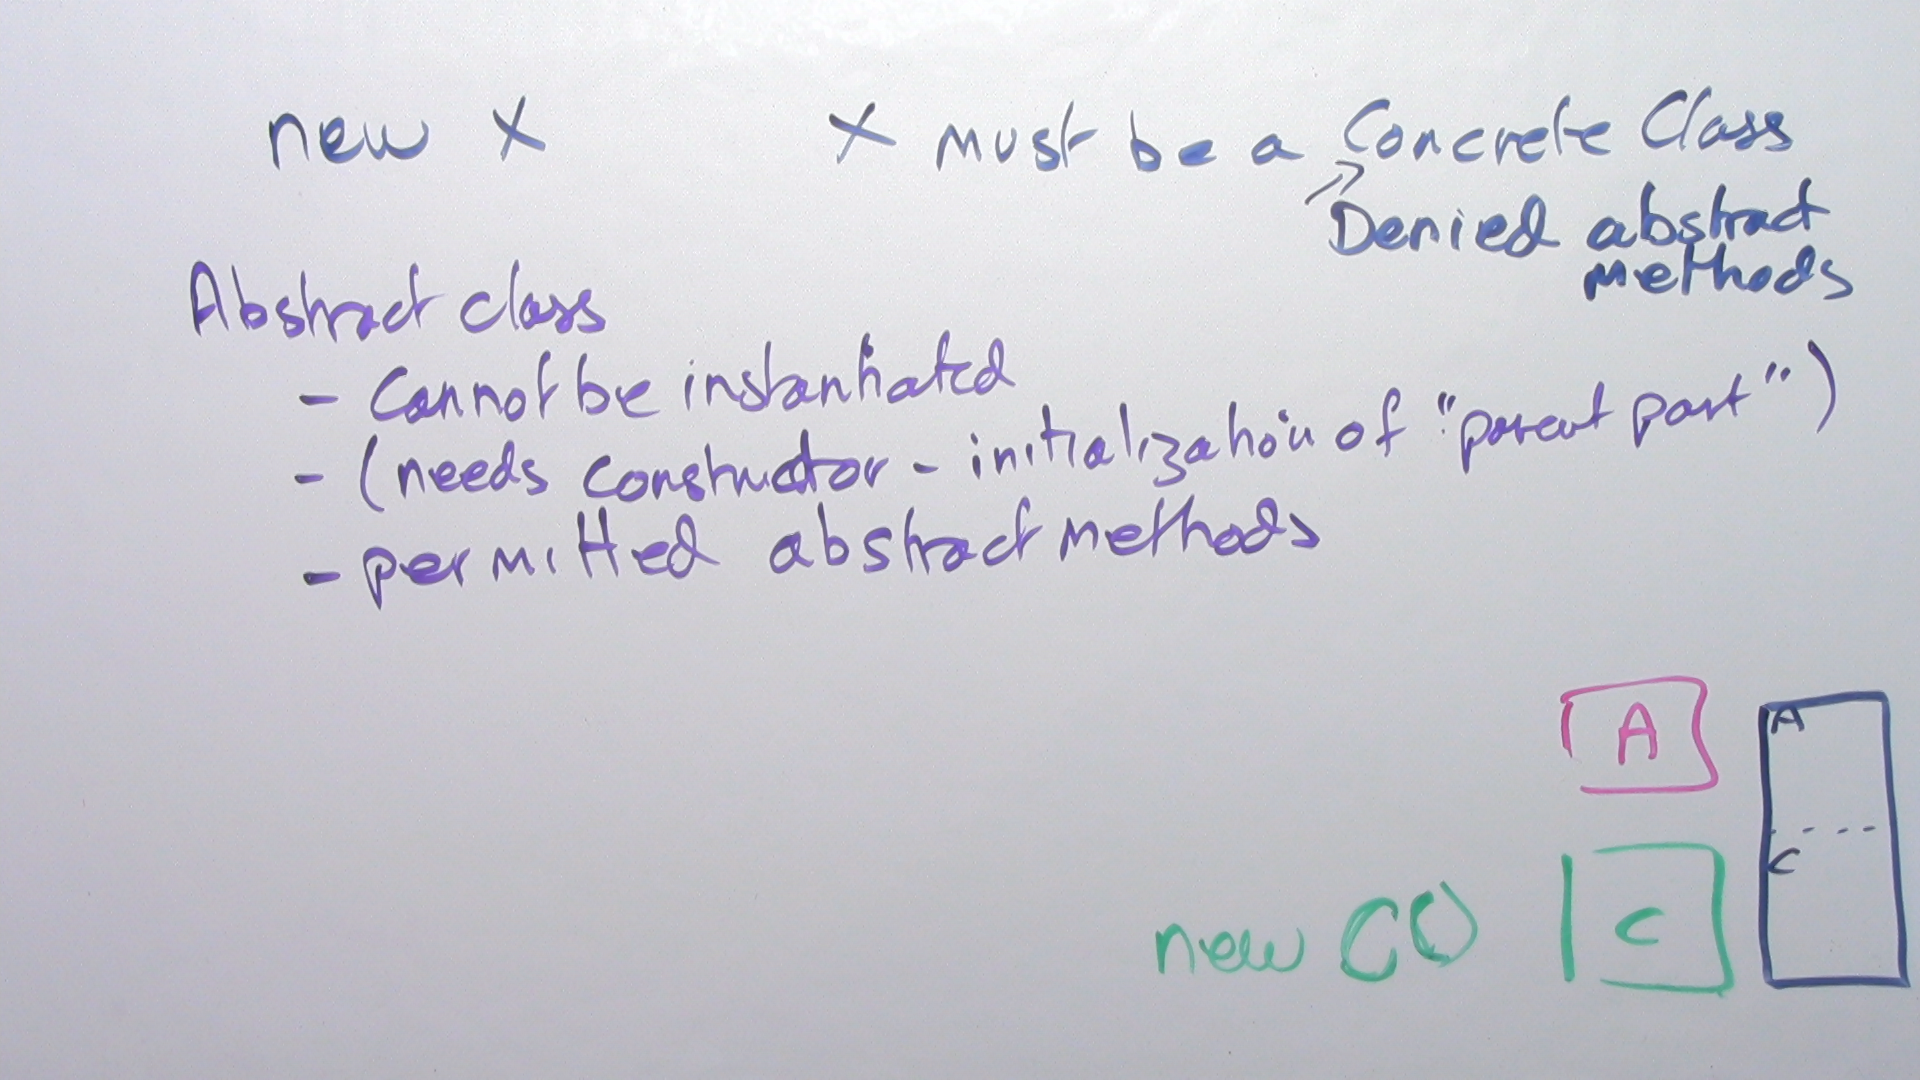 new X
X must be a Concrete Class
Denied abstract
methods
Abstract class
- Cannot be instantiated
- (needs constructor - initialization of "parent part")
- permitted abstract methods
A
A
C
new C()
C